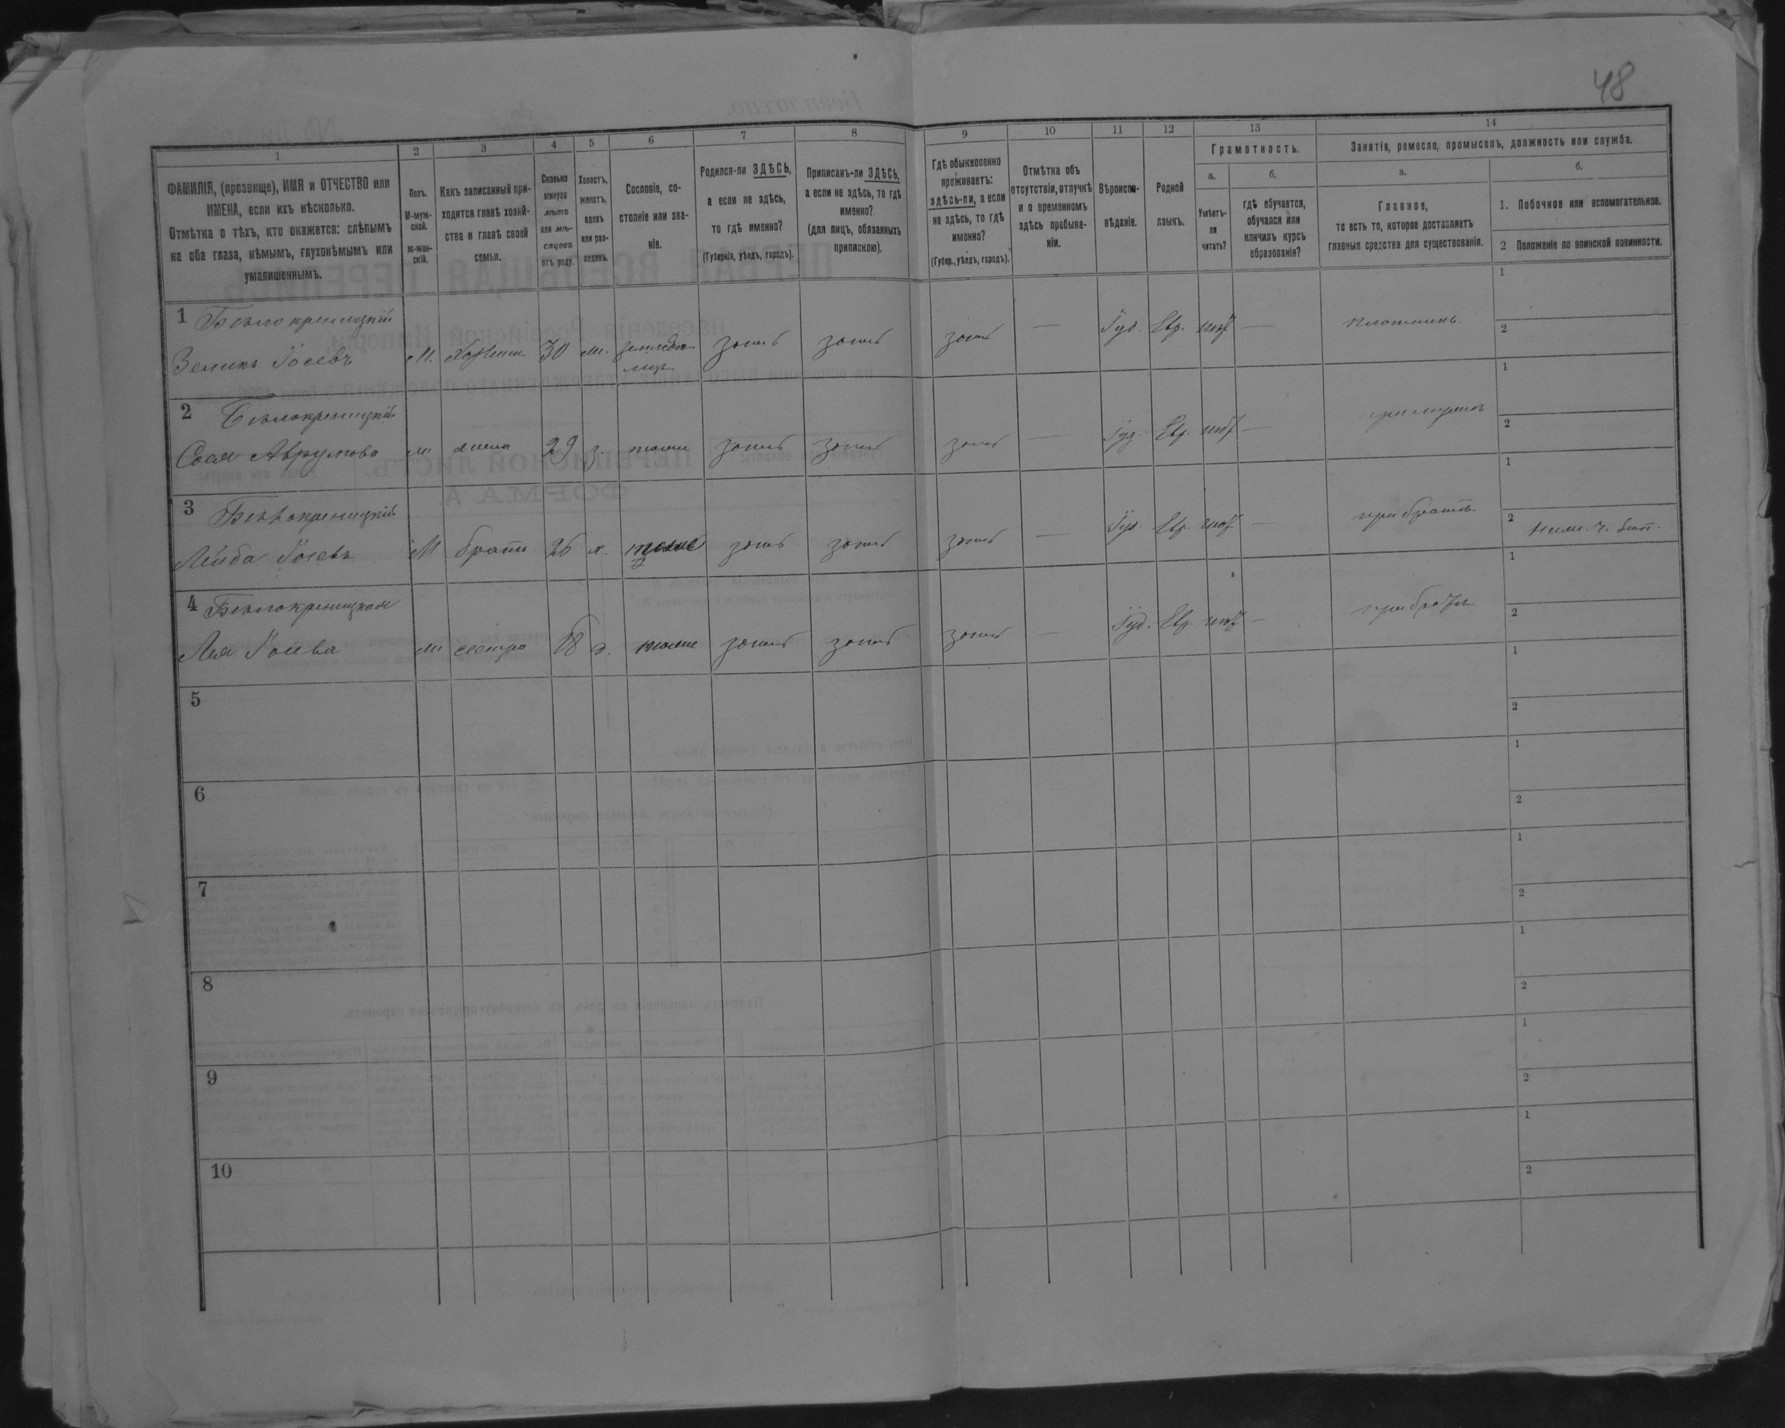 48
1
2
3
4
5
6
7
8
9
10
11
12
13
14
ФАМИЛІЯ, (прозвище), ИМЯ и ОТЧЕСТВО или
ИМЕНА, если ихъ нѣсколько.
Отмѣтка о тѣхъ, кто окажется: слѣпымъ
на оба глаза, нѣмымъ, глухонѣмымъ или
умалишеннымъ.
Полъ.
М-муж-
ской.
Ж-жен-
скій.
Какъ записанный при-
ходится главѣ хозяй-
ства и главѣ своей
семьи.
Сколько
минуло
лѣтъ
или мѣ-
сяцевъ
отъ роду.
Холостъ,
женатъ,
вдовъ
или раз-
веденъ.
Сословіе, со-
стояніе или зва-
ніе.
Родился-ли ЗДѢСЬ,
а если не здѣсь,
то гдѣ именно?
(Губернія, уѣздъ, городъ).
Приписанъ-ли ЗДѢСЬ,
а если не здѣсь, то гдѣ
именно?
(для лицъ, обязанныхъ
припискою).
Гдѣ обыкновенно
проживаетъ:
здѣсь-ли, а если
не здѣсь, то гдѣ
именно?
(Губер., уѣздъ, городъ).
Отмѣтка объ
отсутствіи, отлучкѣ
и о временномъ
здѣсь пребыва-
ніи.
Вѣроиспо-
вѣданіе.
Родной
языкъ.
Грамотность.
а.
Умѣетъ-
ли
читать?
б.
гдѣ обучается,
обучался или
кончилъ курсъ
образованія?
Занятія, ремесло, промыселъ, должность или служба.
а.
Главное,
то есть то, которое доставляетъ
главныя средства для существованія.
б.
1. Побочное или вспомогательное.
2 Положеніе по воинской повинности.
1 Бѣлокриницкій
Зеликъ Іосевъ М. хозяинъ 30 ж. земледѣ-
лецъ здѣсь здѣсь здѣсь — Іуд. Евр. нѣт — плотникъ
1
2
2 Бѣлокриницкій
Сося Аврумова ж жена 29 з. тоже здѣсь здѣсь здѣсь — Іуд. Евр. нѣт — при мужѣ
1
2
3 Бѣлокриницкій
Лейба Іосевъ М братъ 26 х. тоже здѣсь здѣсь здѣсь — Іуд. Евр. нѣт — при братѣ
1
2
4 Бѣлокриницкая
Лея Іосева ж сестра 18 д. тоже здѣсь здѣсь здѣсь — Іуд. Евр. нѣт — при братѣ
1
2
5
1
2
6
1
2
7
1
2
8
1
2
9
1
2
10
1
2